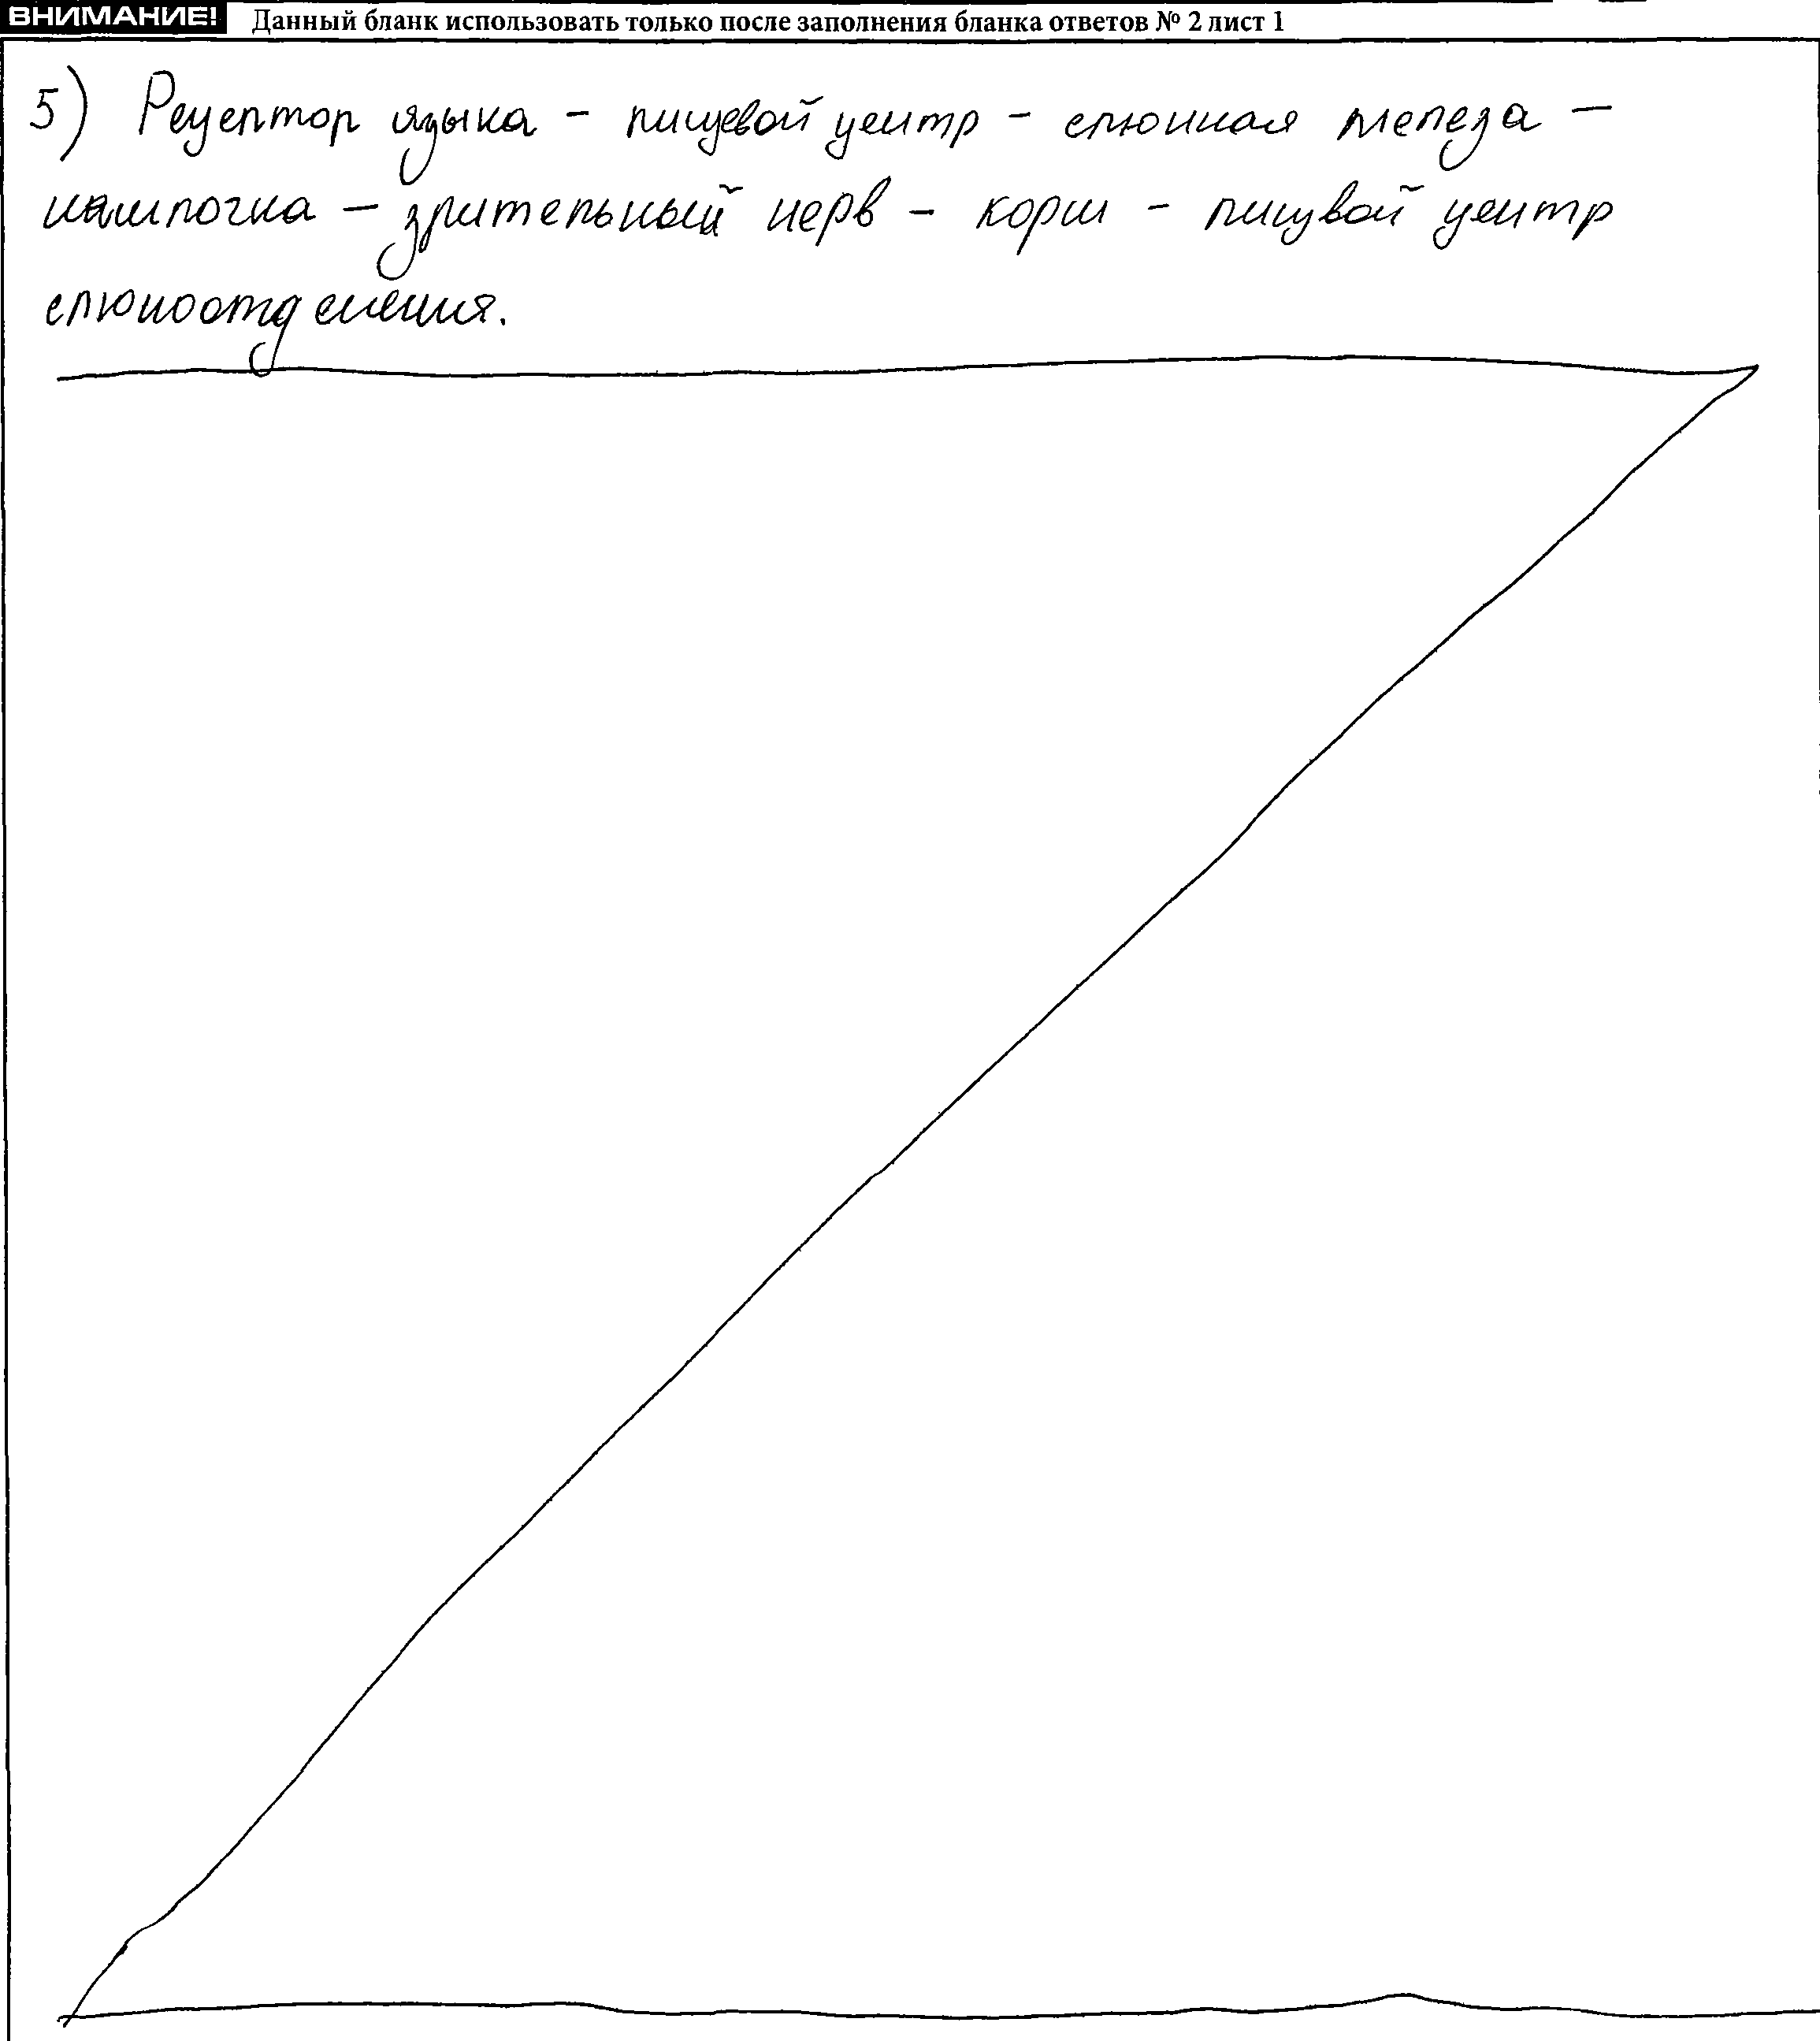 ВНИМАНИЕ! Данный бланк использовать только после заполнения бланка ответов № 2 лист 1
5) Рецептор языка - пищевой центр - слюнная железа -
лампочка - зрительный нерв - коры - пищвой центр
слюноотделения.